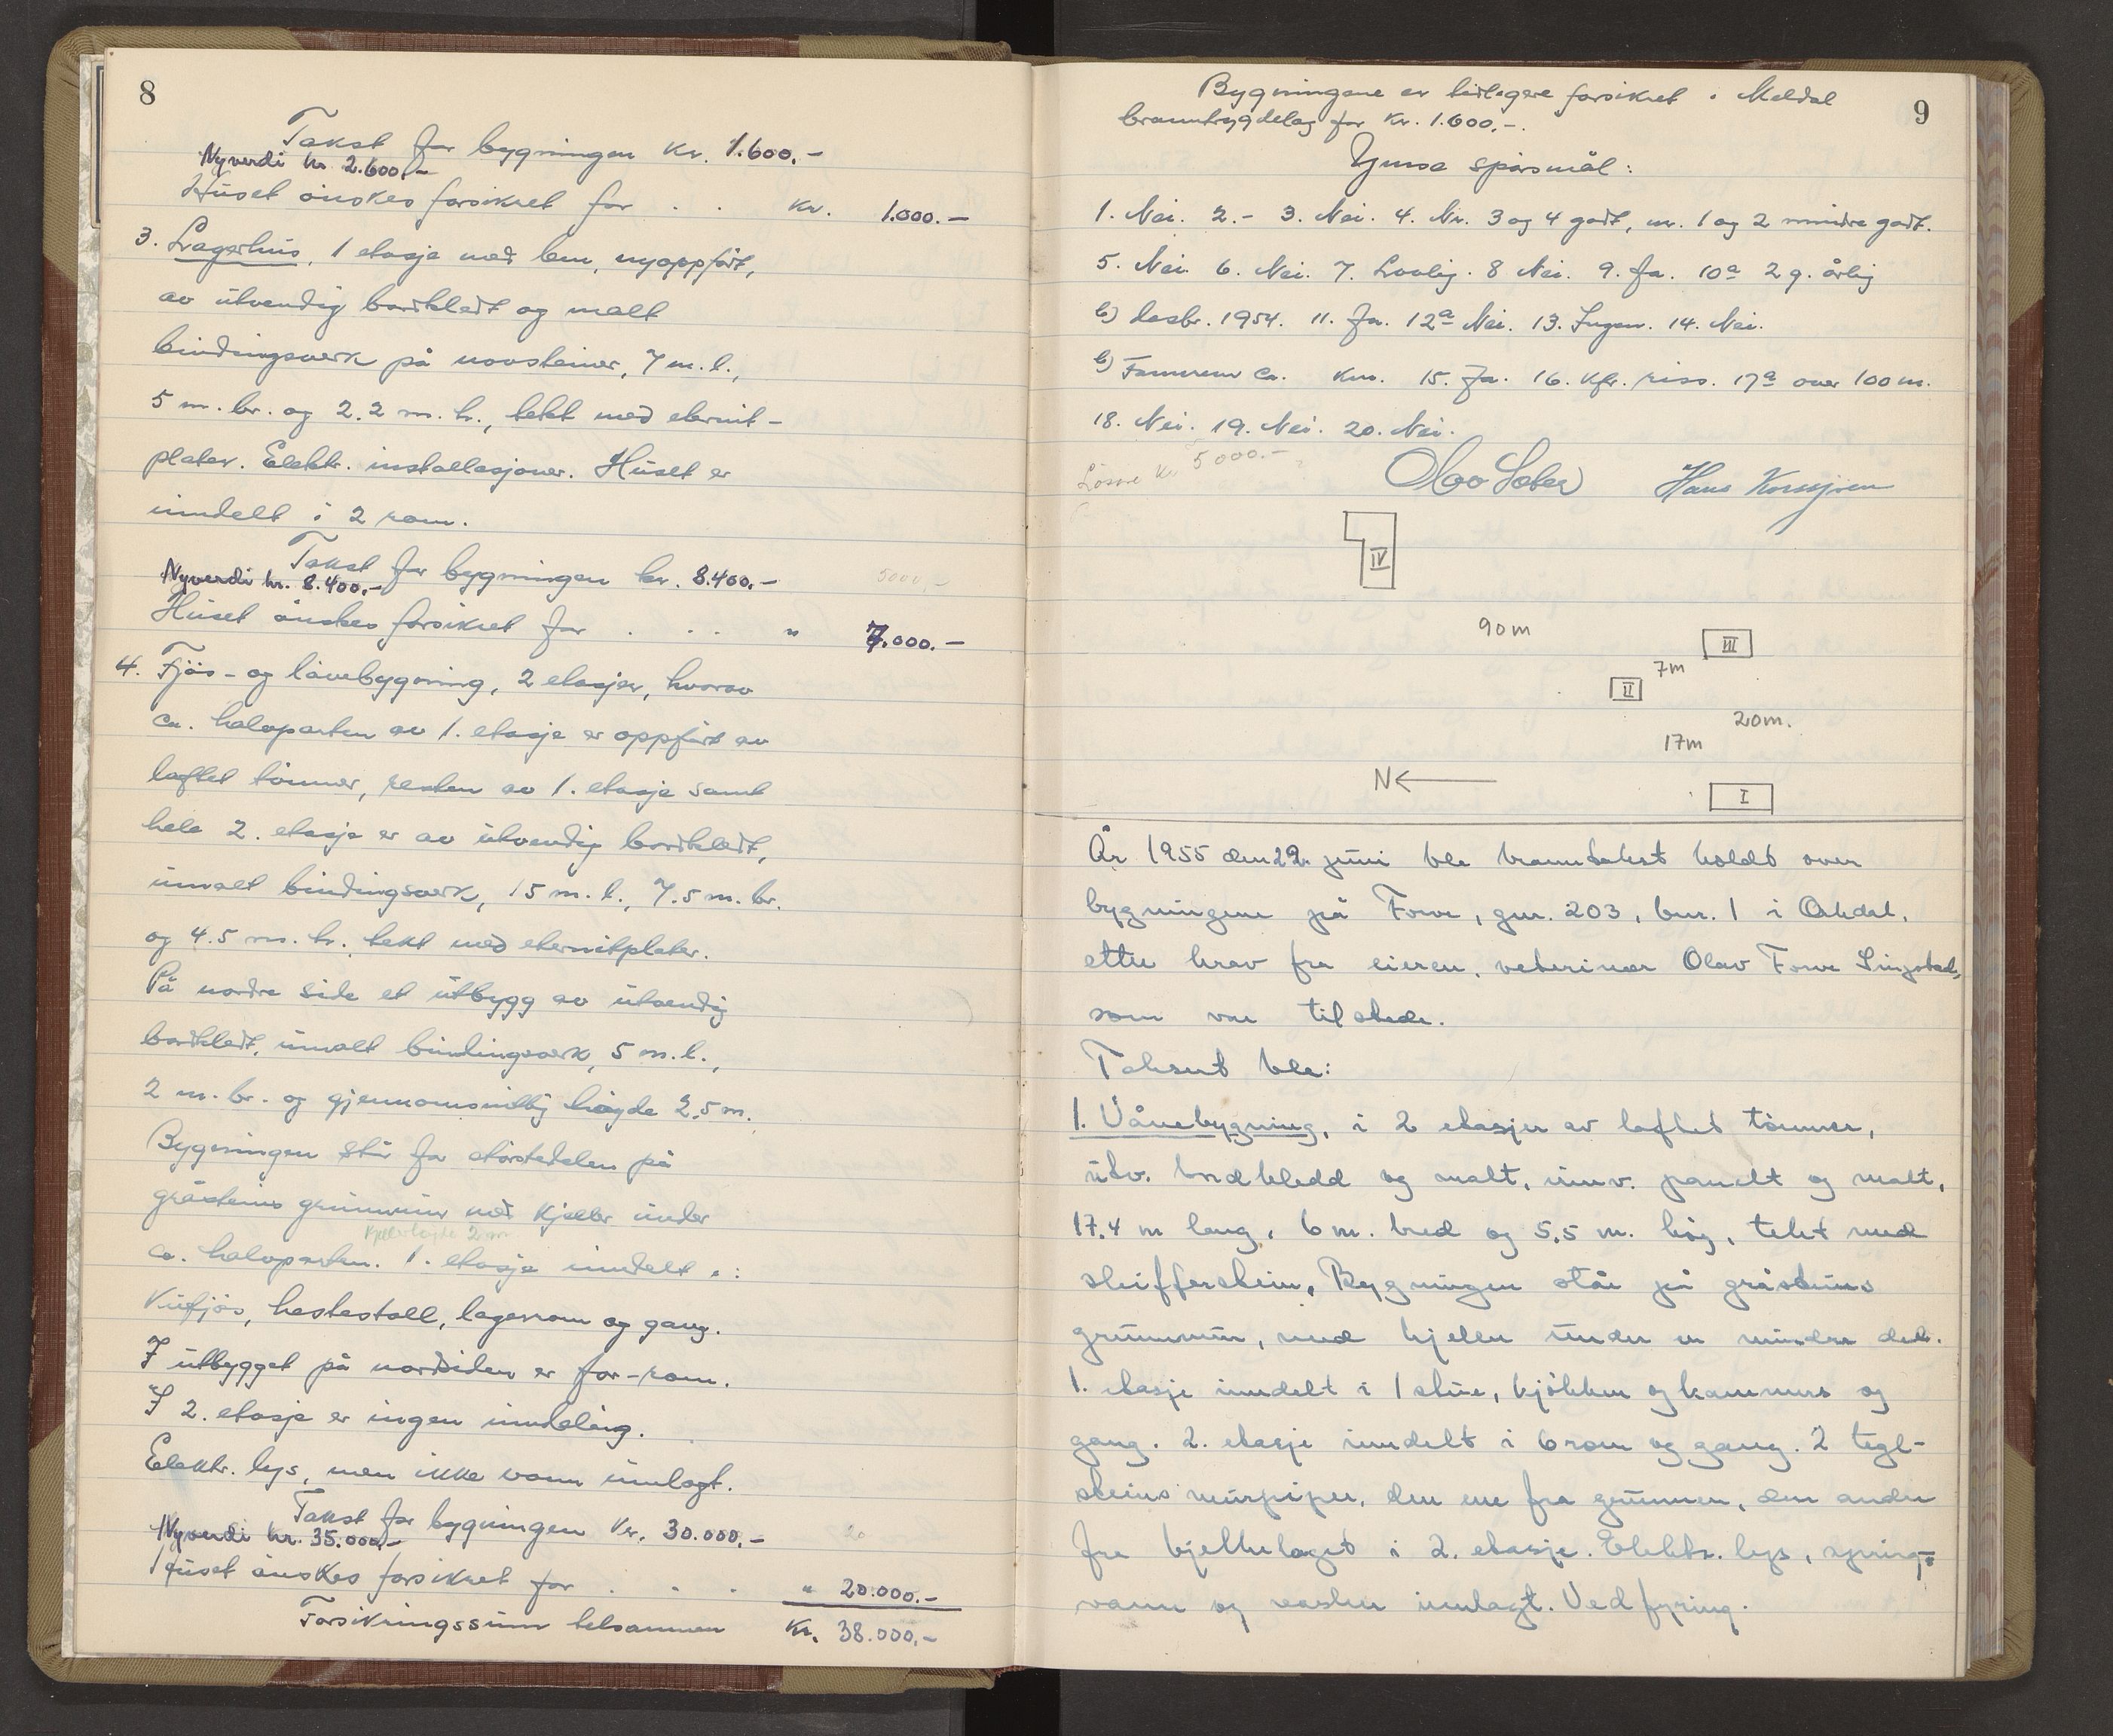 8
Takst for bygningen Kr. 1.600,-
Nyverdi kr. 2.600,-
Huset önskes forsikret for . . Kr. 1.000.-
3. Lagerhus, 1 etasje med lem, nyoppfört,
av utvendig bordkledt og malt
bindingsverk på novsteiner, 7 m. l.,
5 m. br. og 2.2 m. h., tekt med eternit-
plater. Elektr. installasjoner. Huset er
inndelt i 2 rom.
Takst for bygningen kr. 8.400,- 5000,-
Nyverdi kr. 8.400,-
Huset önskes forsikret for . . . " 7.000.-
4. Fjös- og låvebygning, 2 etasjer, hvorav
ca. halvparten av 1. etasje er oppfört av
laftet tömmer, resten av 1. etasje samt
hele 2. etasje er av utvendig bordkledt,
umalt bindingsverk, 15 m. l., 7.5 m. br.
og 4.5 m. h. tekt med eternitplater.
På nordre side et utbygg av utvendig
bordkledt, umalt bindingsverk, 5 m. l.,
2 m. br. og gjennomsnittlig høyde 2.5 m.
Bygningen står for störstedelen på
gråsteins grunnmur med kjeller under
Kjellerhøyde 2 m
ca. halvparten. 1. etasje inndelt i:
Kufjös, hestestall, lagerrom og gang.
I utbygget på nordsiden er for-rom.
I 2. etasje er ingen inndeling.
Elektr. lys, men ikke vann innlagt.
Takst for bygningen Kr. 30.000,- 20
Nyverdi kr. 35.000,-
Huset önskes forsikret for . . . " 20.000.-
Forsikringssum tilsammen Kr. 38.000,-
9
Bygningene er tidligere forsikret i Meldal
branntrygdelag for Kr. 1.600,-.
Ymse spörsmål:
1. Nei. 2. - 3. Nei. 4. Nr. 3 og 4 godt, nr. 1 og 2 mindre godt.
5. Nei. 6. Nei. 7. Lovlig. 8 Nei. 9. Ja. 10a 2 g. årlig
b) desbr. 1954. 11. Ja. 12a Nei. 13. Ingen. 14. Nei.
b) Fannrem ca. km. 15. Ja. 16. Kfr. riss. 17a over 100 m.
18. Nei. 19. Nei. 20. Nei.
Lösøre kr. 5000.-
Hans
IV
90 m
III
7m
II
20m.
17m
N
I
År 1955 den 29. juni ble branntakst holdt over
bygningene på Forve, gnr. 203, bnr. 1 i Orkdal,
etter krav fra eieren, veterinær Olav Forve Singstad,
som var tilstede.
Taksert ble:
1. Vånebygning, i 2 etasjer av laftet tömmer,
utv. bordkledd og malt, innv. panelt og malt,
17.4 m lang, 6 m. bred og 5,5 m. høg, tekt med
skifferstein, Bygningen står på gråsteins
grunnmur, med kjeller under en mindre del.
1. etasje inndelt i 1 stue, kjökken og kammers og
gang. 2. etasje inndelt i 6 rom og gang. 2 tegl-
steins murpiper, den ene fra grunnen, den andre
fra bjelkelaget i 2. etasje. Elektr. lys, spring-
vann og vasker innlagt. Vedfyring.